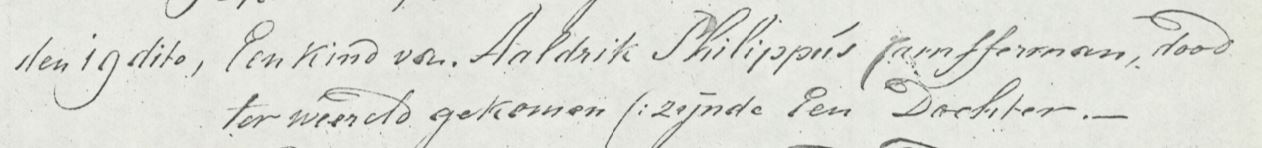 den 19 dito, Een kind van. Aaldrik Philippús Jamfferman, dood
ter weereld gekomen (: zijnde Een Dochter. —